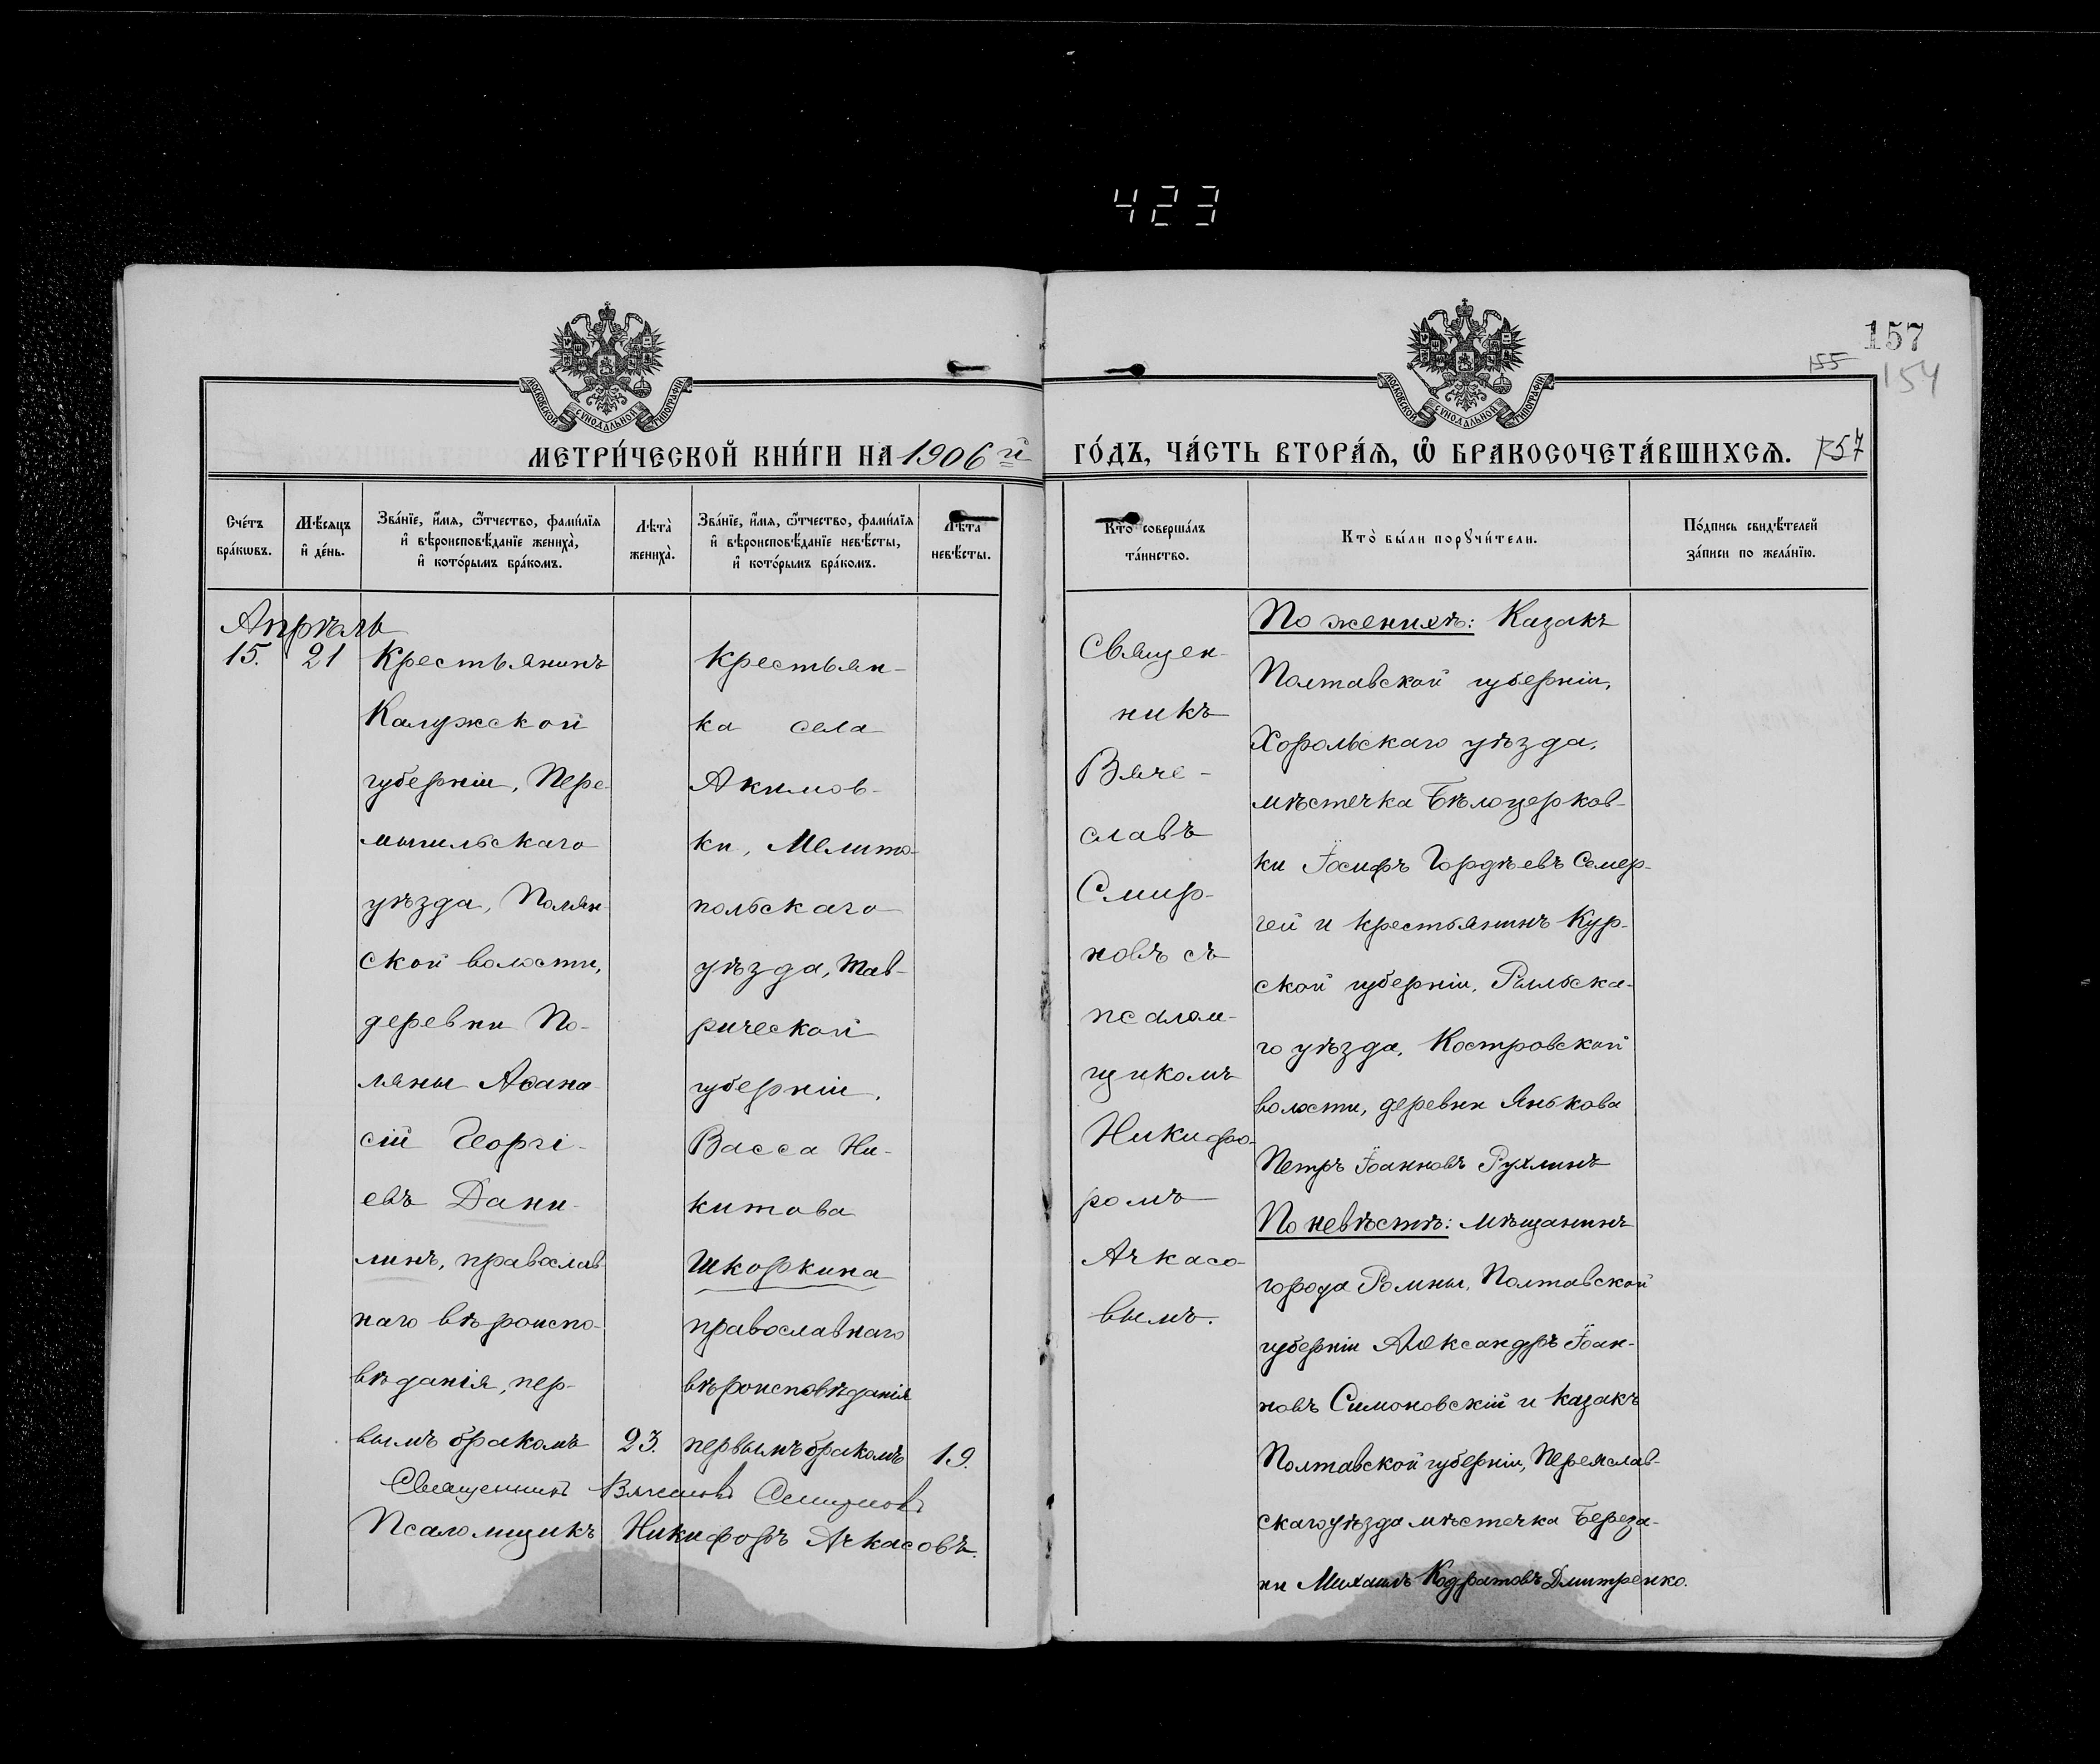 423
157
155
154
МОСКОВСКОЙ СѴНОДАЛЬНОЙ ТИПОГРАФІИ
МОСКОВСКОЙ СѴНОДАЛЬНОЙ ТИПОГРАФІИ
МЕТРИ́ЧЕСКОЙ КНИ́ГИ НА 1906 й
ГО́ДЪ, ЧА́СТЬ ВТОРА́Я, Ѡ҆ БРАКОСОЧЕТА́ВШИХСЯ. 157
Сче́тъ
бра́кѡвъ.
М҆ѣ́сяцъ
и҆ де́нь.
Зва́нїе, и҆́мя, ѻ҆́тчество, фами́лїя
и҆ вѣроисповѣ́данїе жениха̀,
и҆ кото́рымъ бра́комъ.
Лѣта̀
жениха̀.
Зва́нїе, и҆́мя, ѻ҆́тчество, фами́лїя
и҆ вѣроисповѣ́данїе невѣ́сты,
и҆ кото́рымъ бра́комъ.
Лѣта̀
невѣ́сты.
Кто̀ соверша́лъ
та́инство.
Кто̀ бы́ли порꙋчи́тели.
По́дпись свидѣ́телей
за́писи по жела́нїю.
Апрѣль
15. 21
Крестьянинъ
Калужской
губерніи, Пере-
мышльскаго
уѣзда, Полян-
ской волости,
деревни По-
ляны Аѳана-
сій Георгі-
евъ Дани-
линъ, православ
наго вѣроиспо-
вѣданія, пер-
вымъ бракомъ
23.
крестьян-
ка села
Акимов-
ки, Мелито-
польскаго
уѣзда, Тав-
рической
губерніи,
Васса Ни-
китова
Шкоркина
православнаго
вѣроисповѣданія
первымъ бракомъ
19.
Священникъ Вячеславъ Смирновъ
Псаломщикъ Никифоръ Ачкасовъ.
Священ-
никъ
Вяче-
славъ
Смир-
новъ съ
псалом-
щикомъ
Никифо-
ромъ
Ачкасо-
вымъ.
По женихѣ: Казакъ
Полтавской губерніи,
Хорольскаго уѣзда,
мѣстечка Бѣлоцерков-
ки Іосифъ Гордѣевъ Семер-
гей и крестьянинъ Кур-
ской губерніи, Рыльска-
го уѣзда, Костровской
волости, деревни Янькова
Петръ Іоанновъ Рухлинъ
По невѣстѣ: мѣщанинъ
города Ромны, Полтавской
губерніи Александръ Іоан-
новъ Симоновскій и казакъ
Полтавской губерніи, Переяслав-
скаго уѣзда мѣстечка Береза-
ни Михаилъ Кодратовъ Дмитренко.